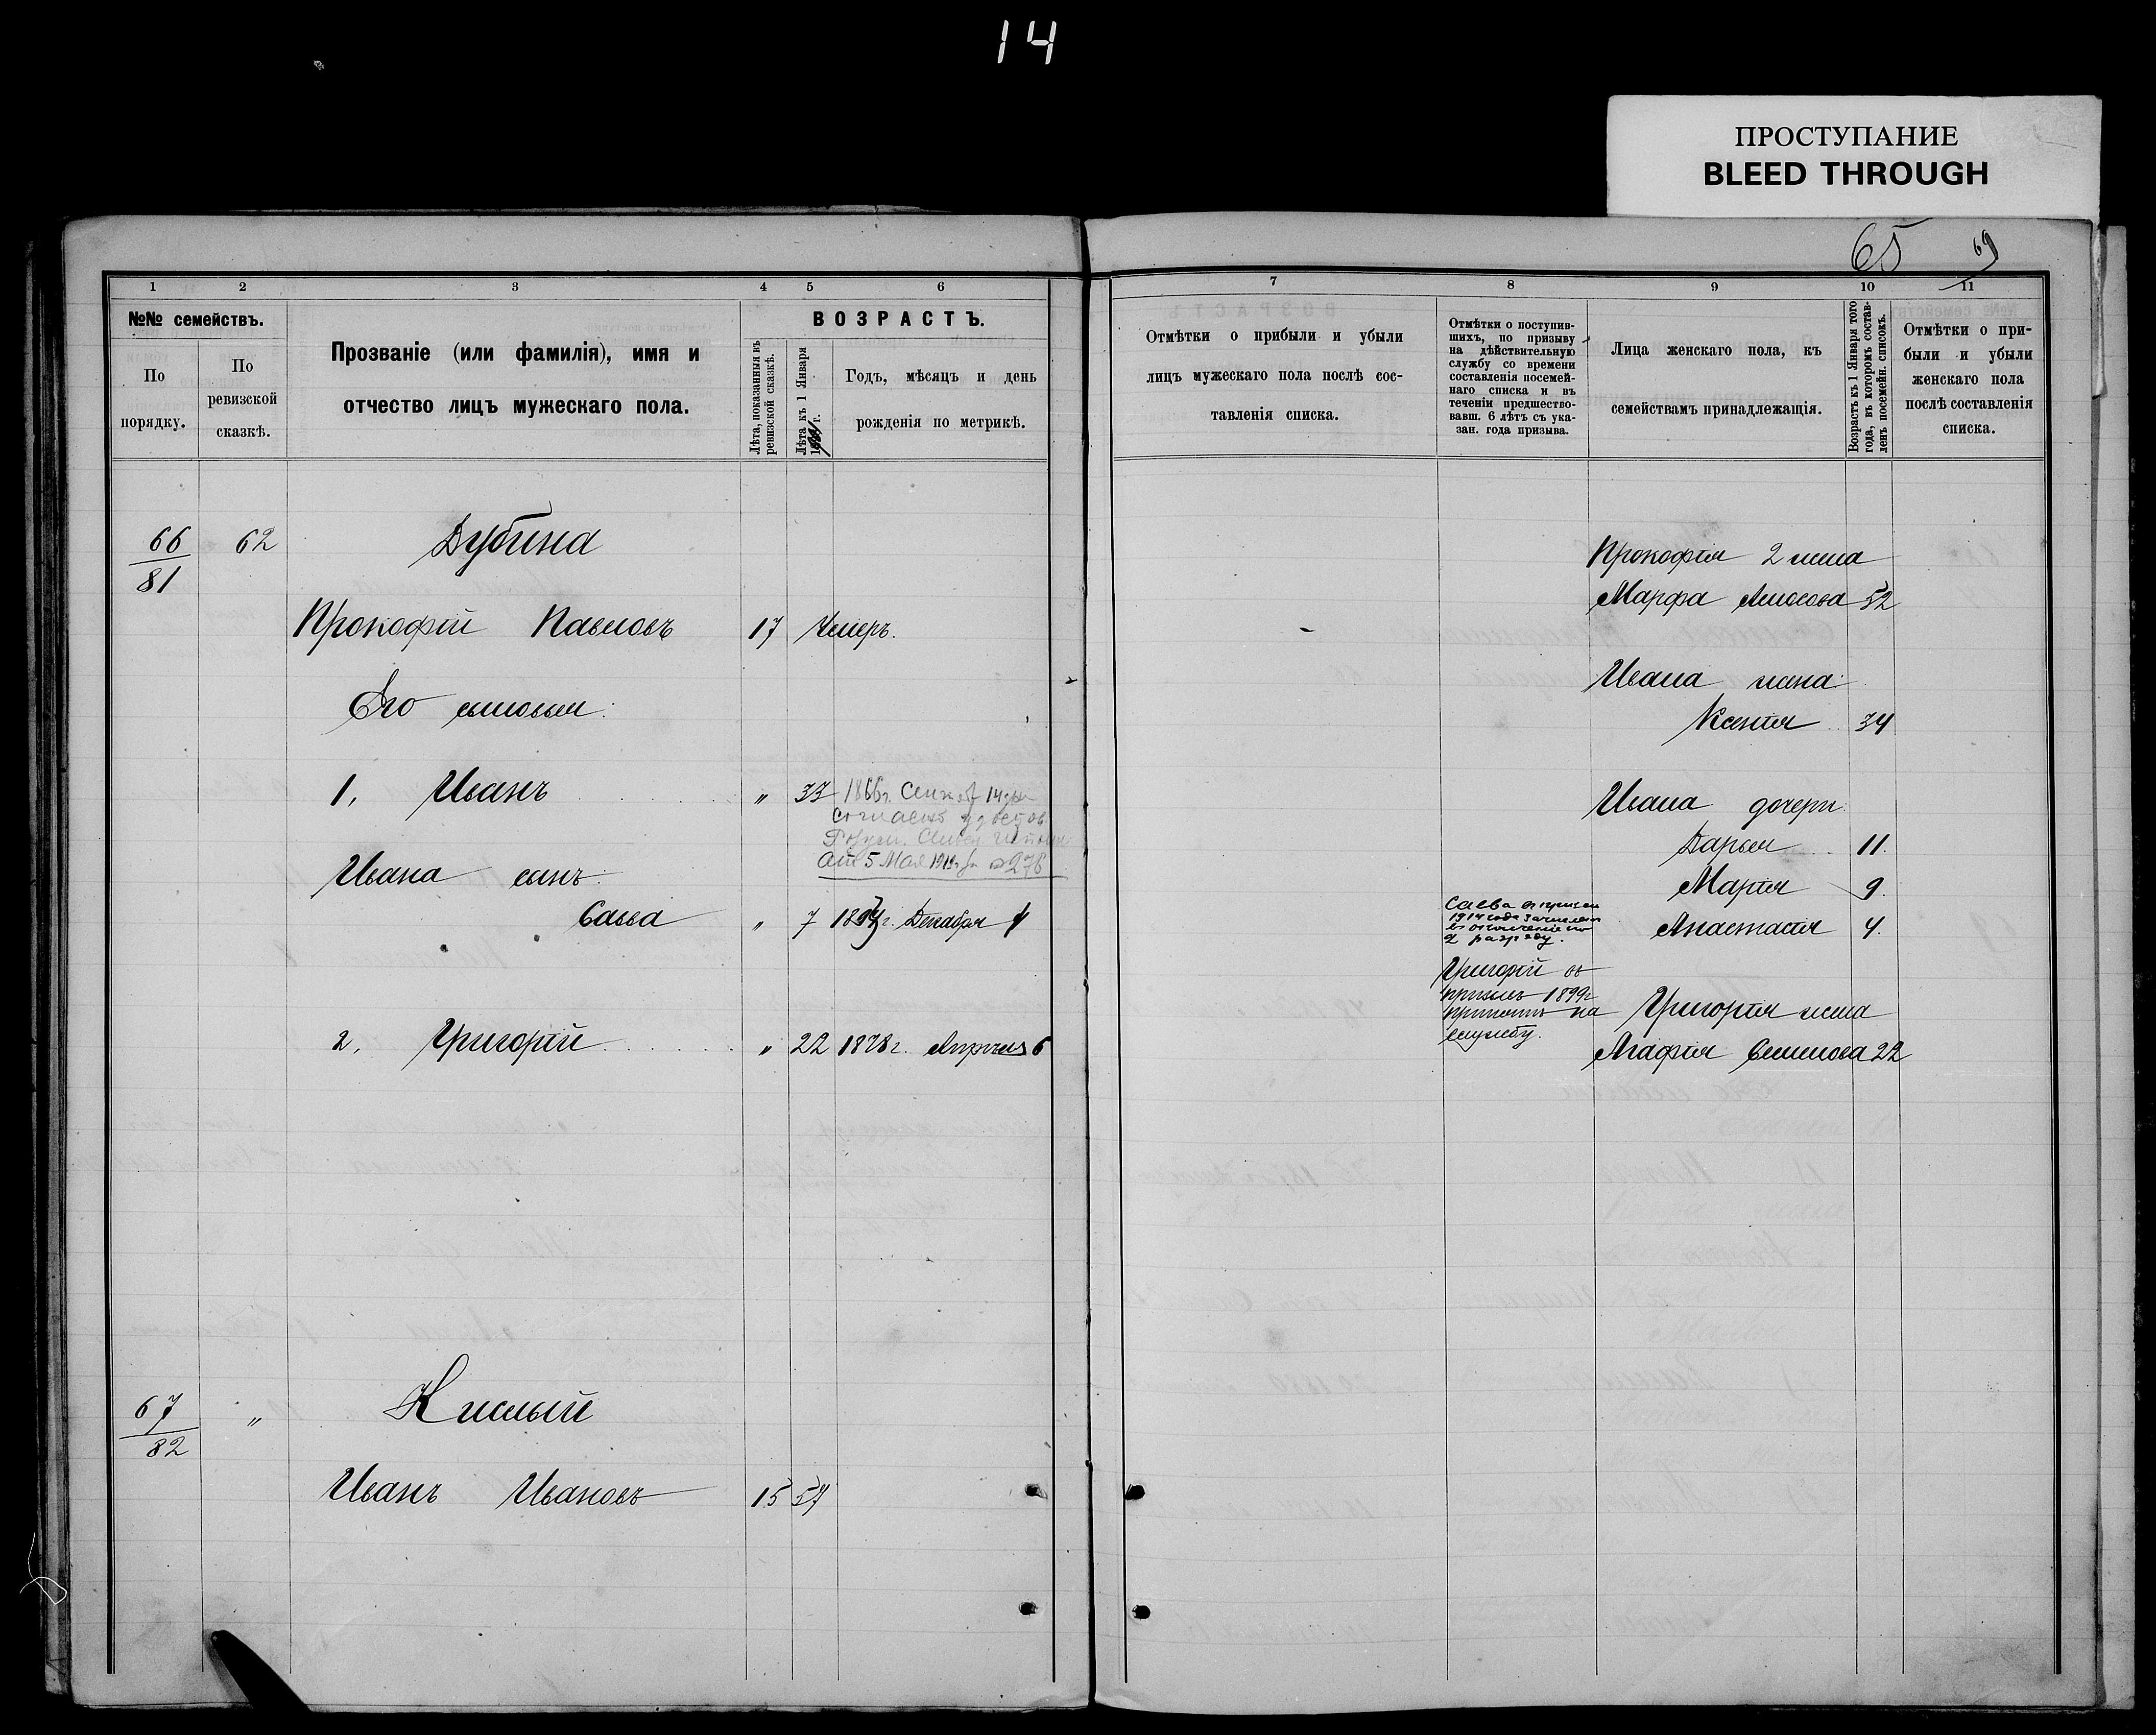 14
ПРОСТУПАНИЕ
BLEED THROUGH
65 69
1 2 3 4 5 6
№№ семействъ.
По порядку.
По ревизской сказкѣ.
Прозваніе (или фамилія), имя и
отчество лицъ мужескаго пола.
ВОЗРАСТЪ.
Лѣта, показанныя въ
ревизской сказкѣ.
Лѣта къ 1 Января
г.
Годъ, мѣсяцъ и день
рожденія по метрикѣ.
66 62 Дубина
81
Прокофій Павловъ 17 Умеръ.
Его сыновья:
1, Иванъ „ 33 1866г. 14
согласно
от 5 Мая № 278
Ивана сынъ:
Савва „ 7 г. Декабря 4
2, Григорій „ 22 1878г. Апрѣля 6
67 „ Кислый
82
Иванъ Ивановъ 15 57
7 8 9 10 11
Отмѣтки о прибыли и убыли
лицъ мужескаго пола послѣ сос-
тавленія списка.
Отмѣтки о поступив-
шихъ, по призыву
на дѣйствительную
службу со времени
составленія посемей-
наго списка и въ
теченіи предшество-
вавш. 6 лѣтъ съ ука-
зан. года призыва.
Лица женскаго пола, къ
семействамъ принадлежащія.
Возрастъ къ 1 Января того
года, въ которомъ состав-
ленъ посемейн. списокъ.
Отмѣтки о при-
были и убыли
женскаго пола
послѣ составленія
списка.
Прокофія 2 жена
Марфа Амосова 52
Ивана жена:
Ксенія 34
Ивана дочери:
Дарья 11.
Марія 9.
Анастасія 4.
Савва
1914 года зачислен
в ополчение по
2 разряду.
Григорій въ
призывъ 1899г
принятъ на
службу.
Григорія жена
Агафія Семенова 22